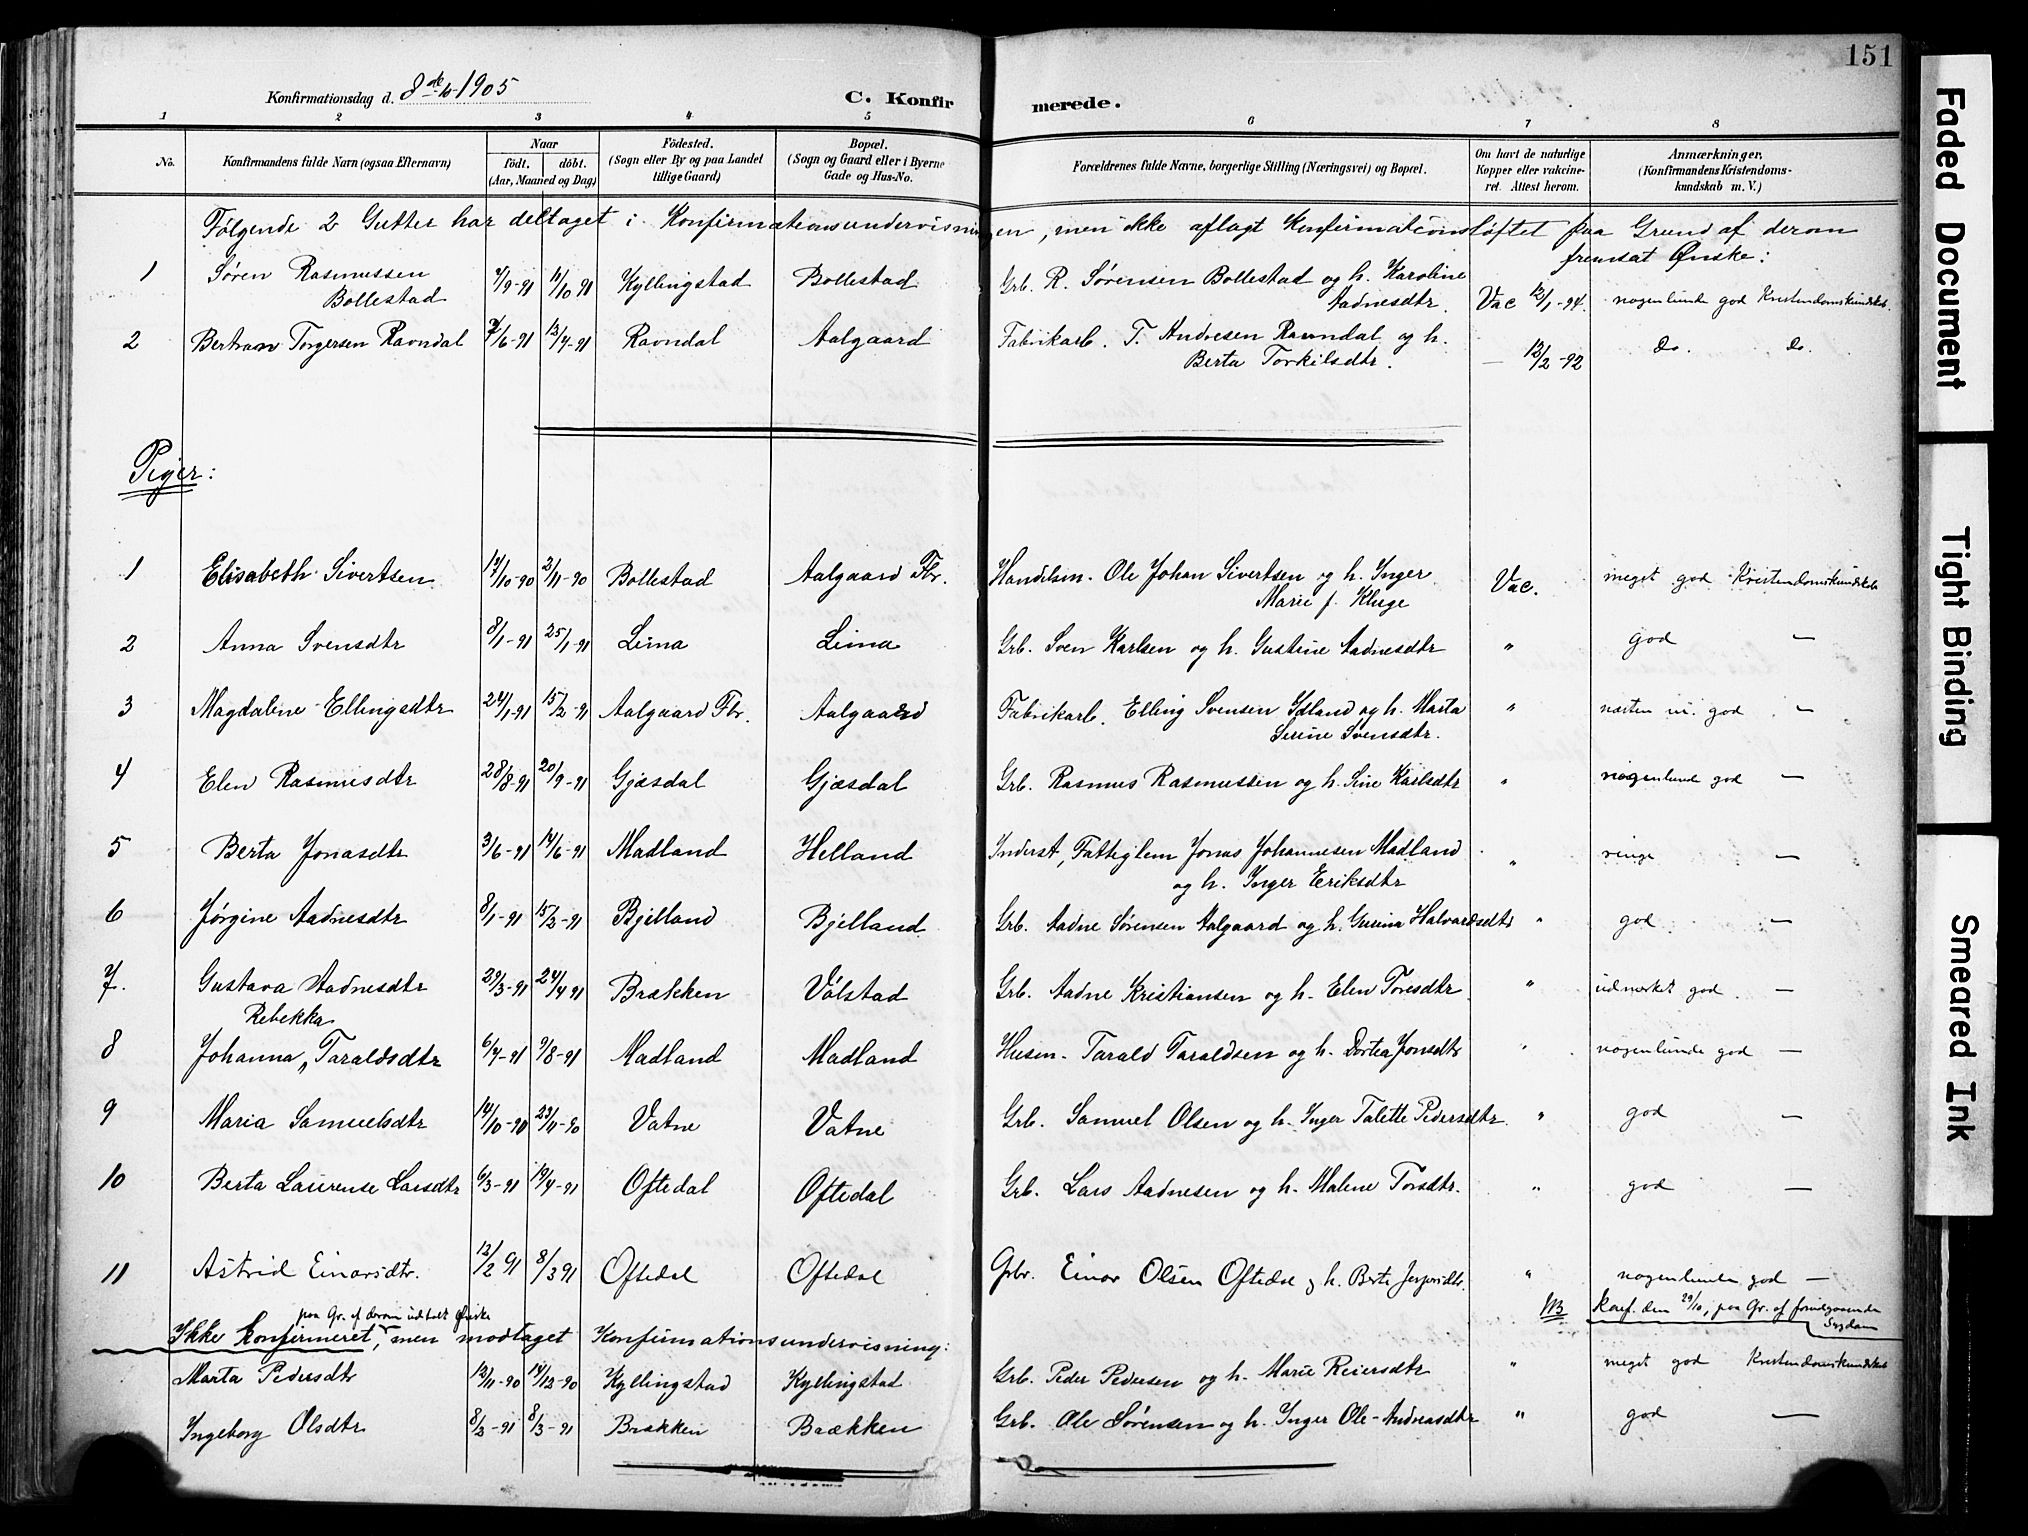 151
Konfirmationsdag d. 8de 10 1905
C. Konfirmerede.
1 2 3 4 5 6 7 8
No. Konfirmandens fulde Navn (ogsaa Efternavn) Naar født. døbt. (Aar, Maaned og Dag) Födested. (Sogn eller By og paa Landet tillige Gaard) Bopæl. (Sogn og Gaard eller i Byerne Gade og Hus-No. Forældrenes fulde Navne, borgerlige Stilling (Næringsvei) og Bopæl. Om havt de naturlige Kopper eller vakcineret. Attest herom. Anmærkninger. (Konfirmandens Kristendomskundskab m. V.)
Følgende 2 Gutter har deltaget i Konfirmationsundervisningen, men ikke aflagt Konfirmationsløftet paa Grund af derom
fremsat Ønske:
1 Søren Rasmussen Bollestad 7/9-91 11/10 91 Kyllingstad Bollestad Grb. R. Sørensen Bollestad og h. Karoline Aadnesdtr. Vac 12/1-94. nogenlunde god Kristendomskundskab.
2 Bertram Torgersen Ravndal 7/6-91 13/7-91 Ravndal Aalgaard Fabrikarb. T. Andresen Ravndal og h. Berta Torkilsdtr. — 12/2-92 do. do.
Piger:
1 Elisabeth Sivertsen 17/10-90 2/11-90 Bollestad Aalgaard Fbr. Handelsm. Ole Johan Sivertsen og h. Inger Marie f. Kluge Vac. meget god Kristendomskundskab
2 Anna Svensdtr 8/1-91 25/1-91 Lima Lima Grb. Sven Karlsen og h. Gustine Aadnesdtr " god —
3 Magdalene Ellingsdtr 24/1-91 15/2-91 Aalgaard Fbr. Aalgaard Fabrikarb. Elling Svensen Ydland og h. Marta Serine Svensdtr. " næsten m. god —
4 Elen Rasmusdtr 28/8-91 20/9-91 Gjæsdal Gjæsdal Grb. Rasmus Rasmussen og h. Sine Karlsdtr " nogenlunde god —
5 Berta Jonasdtr 3/6-91 14/6-91 Madland Helland Inderst, Fattiglem Jonas Johannesen Madland og h. Inger Eriksdtr " ringe —
6 Jørgine Aadnesdtr 8/1-91 15/2-91 Bjelland Bjelland Grb. Aadne Sørensen Aalgaard og h. Gurina Halvardsdtr " god —
7. Gustava Aadnesdtr 29/3-91 24/4 91 Brækken Vølstad Grb. Aadne Kristiansen og h. Elen Toresdtr " udmerket god —
8 Johanna Rebekka Taraldsdtr 6/7-91 9/8-91 Madland Madland Husm. Tarald Taraldsen og h. Dortea Jonsdtr " nogenlunde god —
9 Maria Samuelsdtr 14/10-90 23/11-90 Vatne Vatne Grb. Samuel Olsen og h. Inger Talette Pedersdtr " god —
10 Berta Laurense Larsdtr 6/3-91 19/4-91 Oftedal Oftedal Grb. Lars Aadnesen og h. Malene Torsdtr. " god —
11 Astrid Einarsdtr. 12/2 91 8/3 91 Oftedal Oftedal Gbr. Einar Olsen Oftedal og h. Berte Jespersdtr. " nogenlunde god —
NB Konf. den 29/10, paa Gr. af foregaaende Sygdom
paa Gr. af derom udtalt Ønske
Ikke konfirmeret, men modtaget Konfirmationsundervisning:
Marta Pedersdtr 12/11-90 14/12-90 Kyllingstad Kyllingstad Grb. Peder Pedersen og h. Marie Reiersdtr " meget god Kristendomskundskab
Ingeborg Olsdtr 8/2-91 8/3-91 Brækken Brækken Grb. Ole Sørensen og h. Inger Ole-Andreasdtr " god —
Faded Document
Tight Binding
Smeared Ink